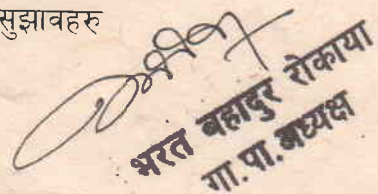 सुझावहरु
भरत बहादुर रोकाया
गा.पा.अध्यक्ष